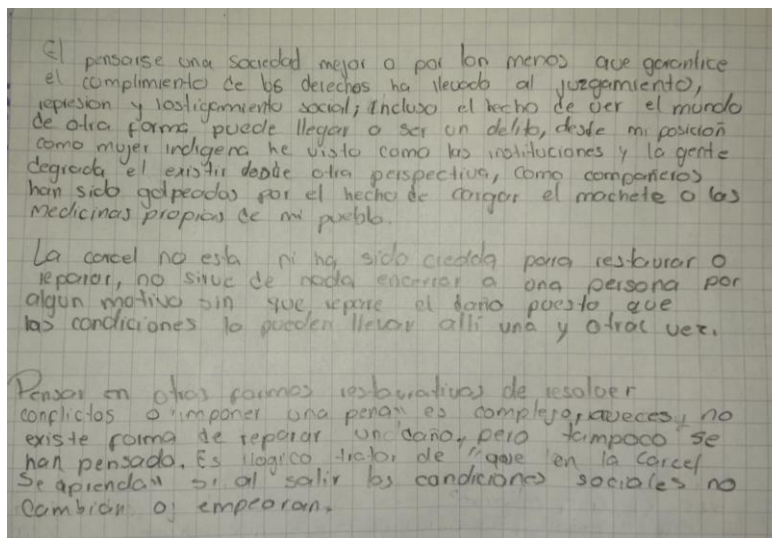 El pensarse una sociedad mejor o por lon menos que garantice
el cumplimiento de los derechos ha llevado al juzgamiento,
represion y hostigamiento social; incluso el hecho de ver el mundo
de otra forma puede llegar a ser un delito, desde mi posición
como mujer indigena he visto como las instituciones y la gente
degrada el existir desde otra perspectiva, como compañeros
han sido golpeados por el hecho de cargar el machete o las
medicinas propias de mi pueblo.
La carcel no esta ni ha sido creada para restaurar o
reparar, no sirve de nada encerrar a una persona por
algun motivo sin que repare el daño puesto que
las condiciones lo pueden llevar alli una y otra vez.
Pensar en otras formas restaurativas de resolver
conflictos o "imponer una pena" es complejo, aveces no
existe forma de reparar un daño, pero tampoco se
han pensado. Es ilogico tratar de "que en la carcel
se aprenda" si al salir las condiciones sociales no
cambian o empeoran.